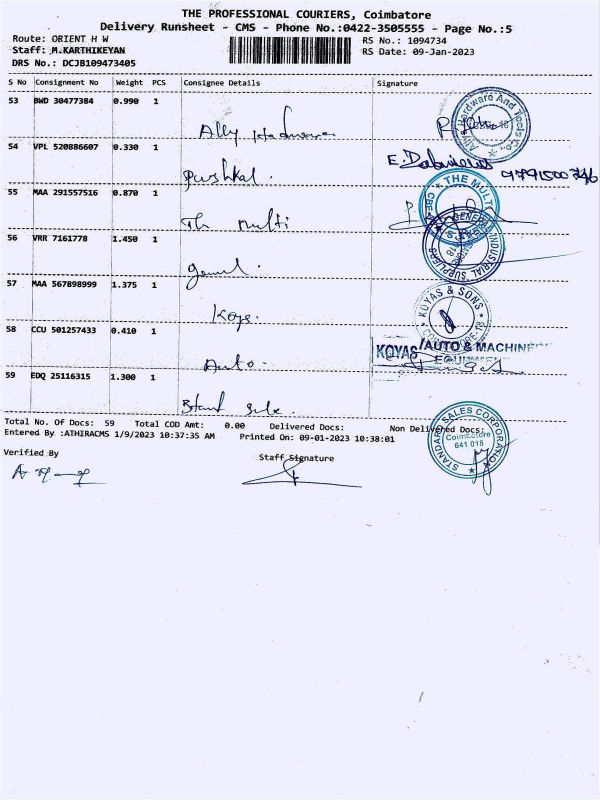 THE PROFESSIONAL COURIERS, Coimbatore
Delivery Runsheet - CMS - Phone No.:0422-3505555 - Page No.:5
Route: ORIENT H W
RS No.: 1094734
Staff: M.KARTHIKEYAN
RS Date: 09-Jan-2023
DRS No.: DCJB109473405
S No Consignment No Weight PCS Consignee Details Signature
53 BWD 30477384 0.990 1
Ally
Hardware And Tools Co.
54 VPL 520886607 0.330 1
Pushkal.
E.
9791500746
55 MAA 291557516 0.870 1
Th multi
THE MULTI
CBE
56 VRR 7161778 1.450 1
GENERAL INDUSTRIAL SUPPLIERS
57 MAA 567898999 1.375 1
Koys.
KOYAS & SONS
58 CCU 501257433 0.410 1
Auto.
KOYAS AUTO & MACHINE
EQUIPMENT
59 EDQ 25116315 1.300 1
Stand
STANDARD SALES CORPORATION
Coimbatore
641 018
Total No. Of Docs: 59 Total COD Amt: 0.00 Delivered Docs: Non Delivered Docs:
Entered By :ATHIRACMS 1/9/2023 10:37:35 AM Printed On: 09-01-2023 10:38:01
Verified By
Staff Signature